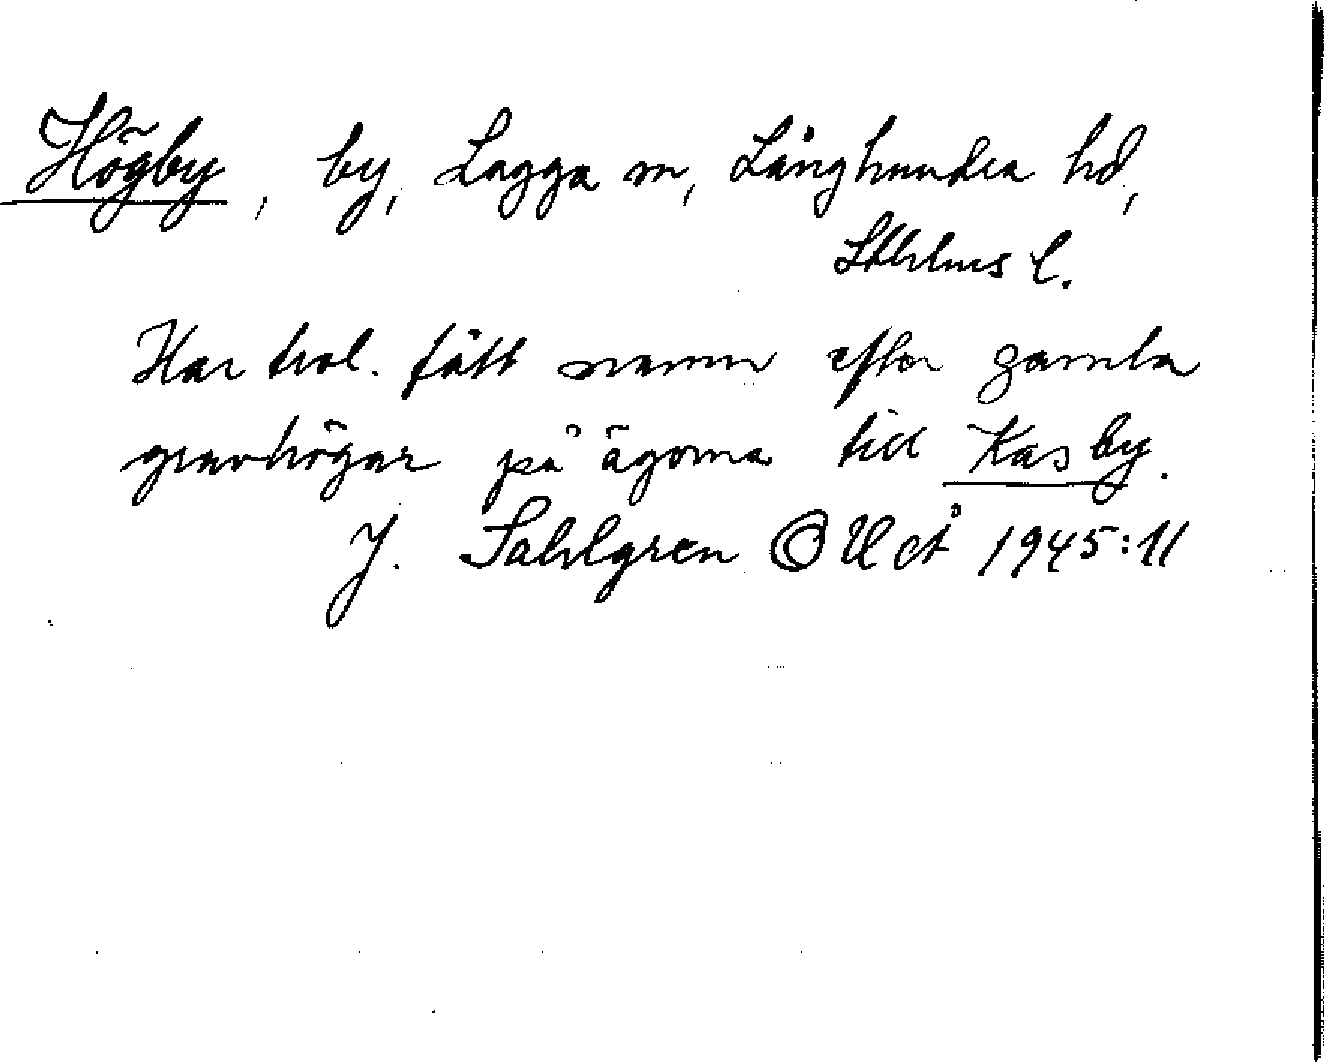 Högby, by, Lagga sn, Långhundra hd,
Sthlms l.
Har trol. fått namn efter gamla
gravhögar på ägorna till Kasby.
J. Sahlgren © 1945:11